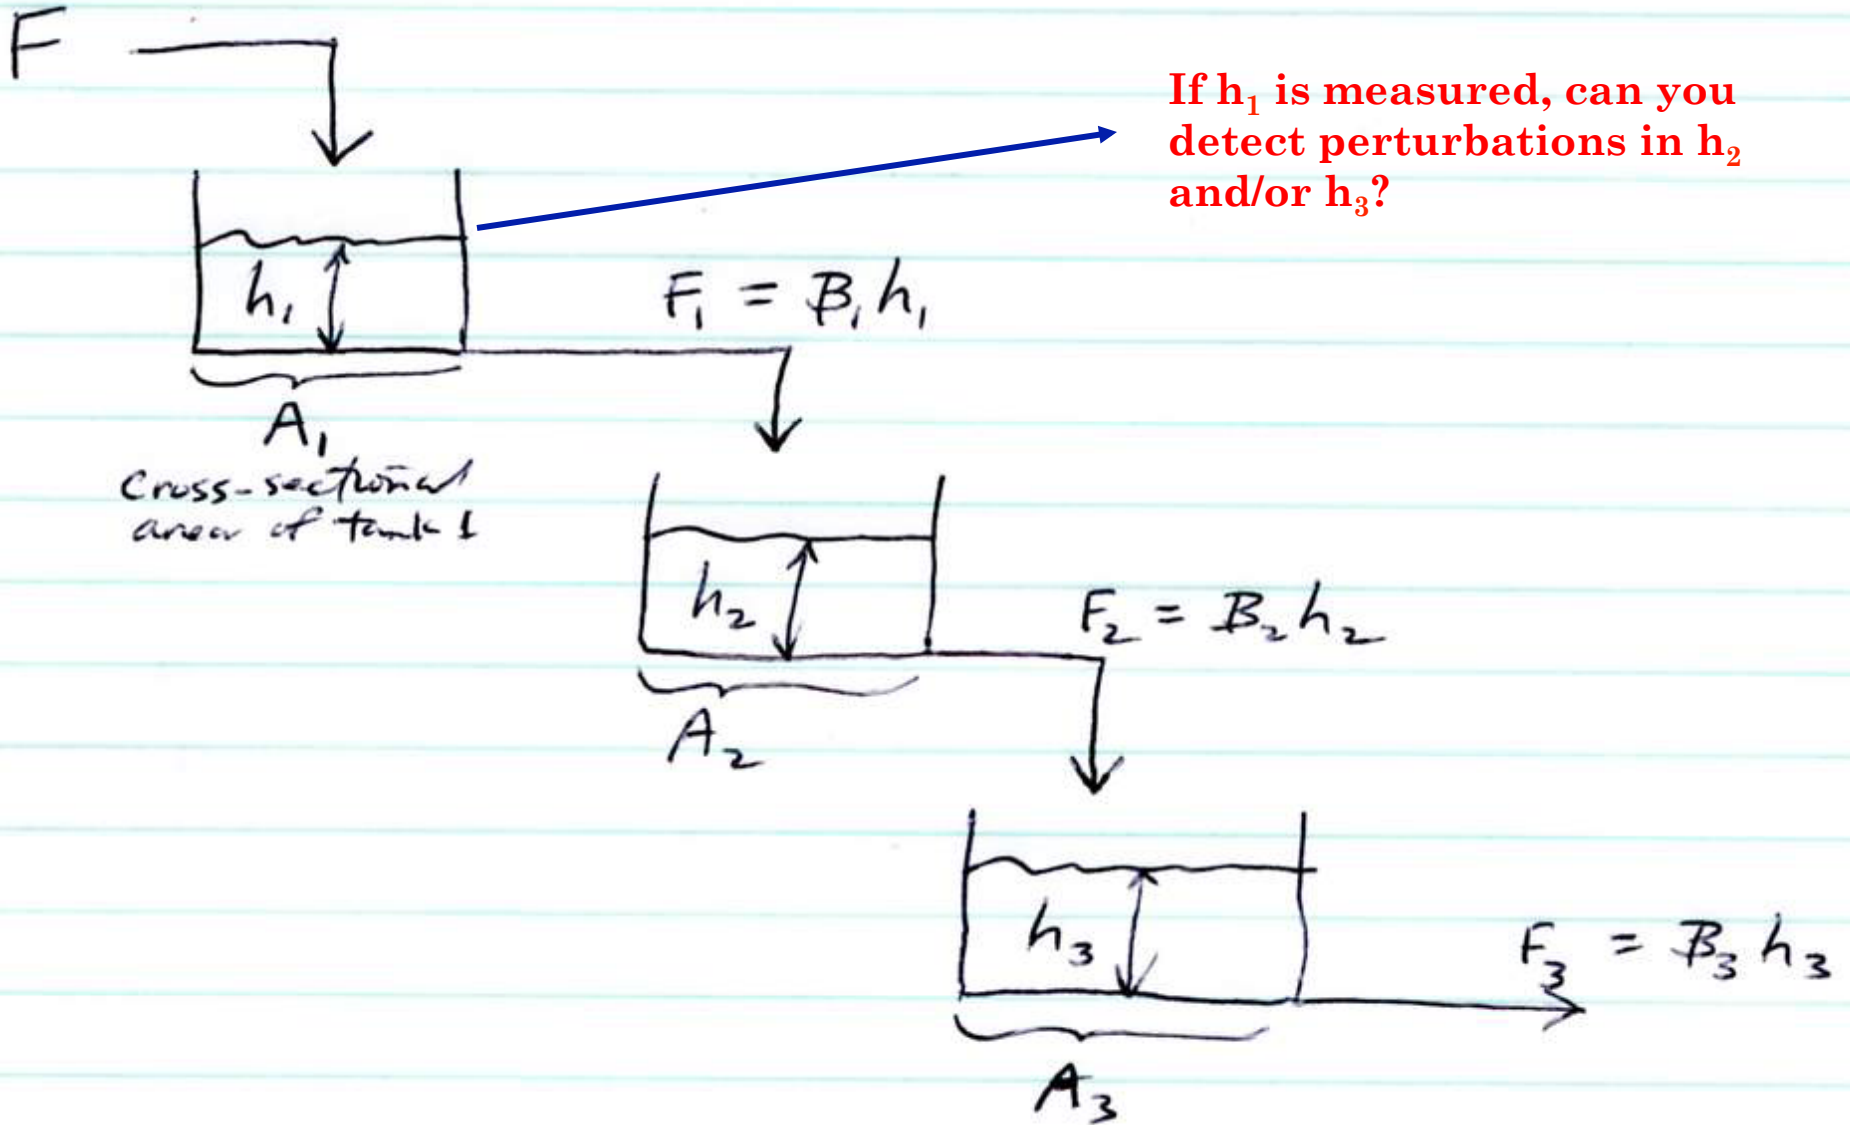 F
If h₁ is measured, can you
detect perturbations in h₂
and/or h₃?
h₁
F₁ = B₁h₁
A₁
Cross-sectional
area of tank 1
h₂
F₂ = B₂h₂
A₂
h₃
F₃ = B₃h₃
A₃